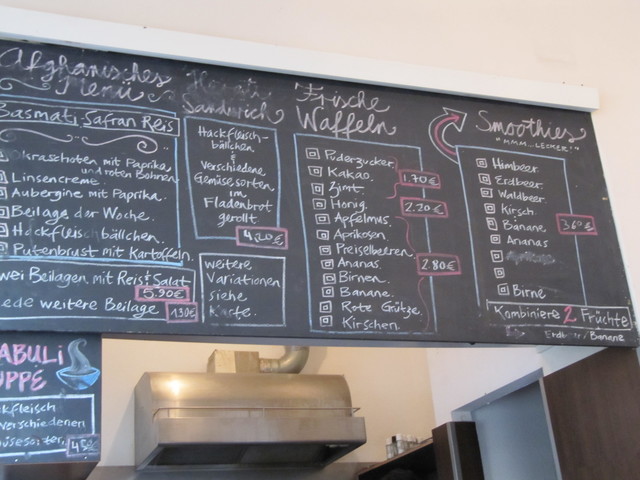 Afghanisches
Menü
Basmati Safran Reis
Okraschoten mit Paprika
und roten Bohnen
Linsencreme.
Aubergine mit Paprika.
Beilage der Woche.
Hackfleischbällchen.
Putenbrust mit Kartoffeln.
wei Beilagen mit Reis & Salat
5.90€
ede weitere Beilage
1.30€
Sandwich
Hackfleisch-
bällchen
&
verschiedene
Gemüsesorten
im
Fladenbrot
gerollt
4,20€
weitere
Variationen
siehe
Karte.
Frische
Waffeln
Puderzucker
Kakao.
Zimt.
1.70€
Honig.
Apfelmus.
2.20€
Aprikosen
Preiselbeeren
Ananas.
Birnen.
Banane.
Rote Grütze.
Kirschen.
2.80€
Smoothies
"MMM...LECKER!"
Himbeer
Erdbeer
Waldbeer
Kirsch.
Banane
Ananas
Birne
3.60€
Kombiniere 2 Früchte
Erdbeer / Banane
ABULI
UPPE
ckfleisch
verschiedenen
müsesorten